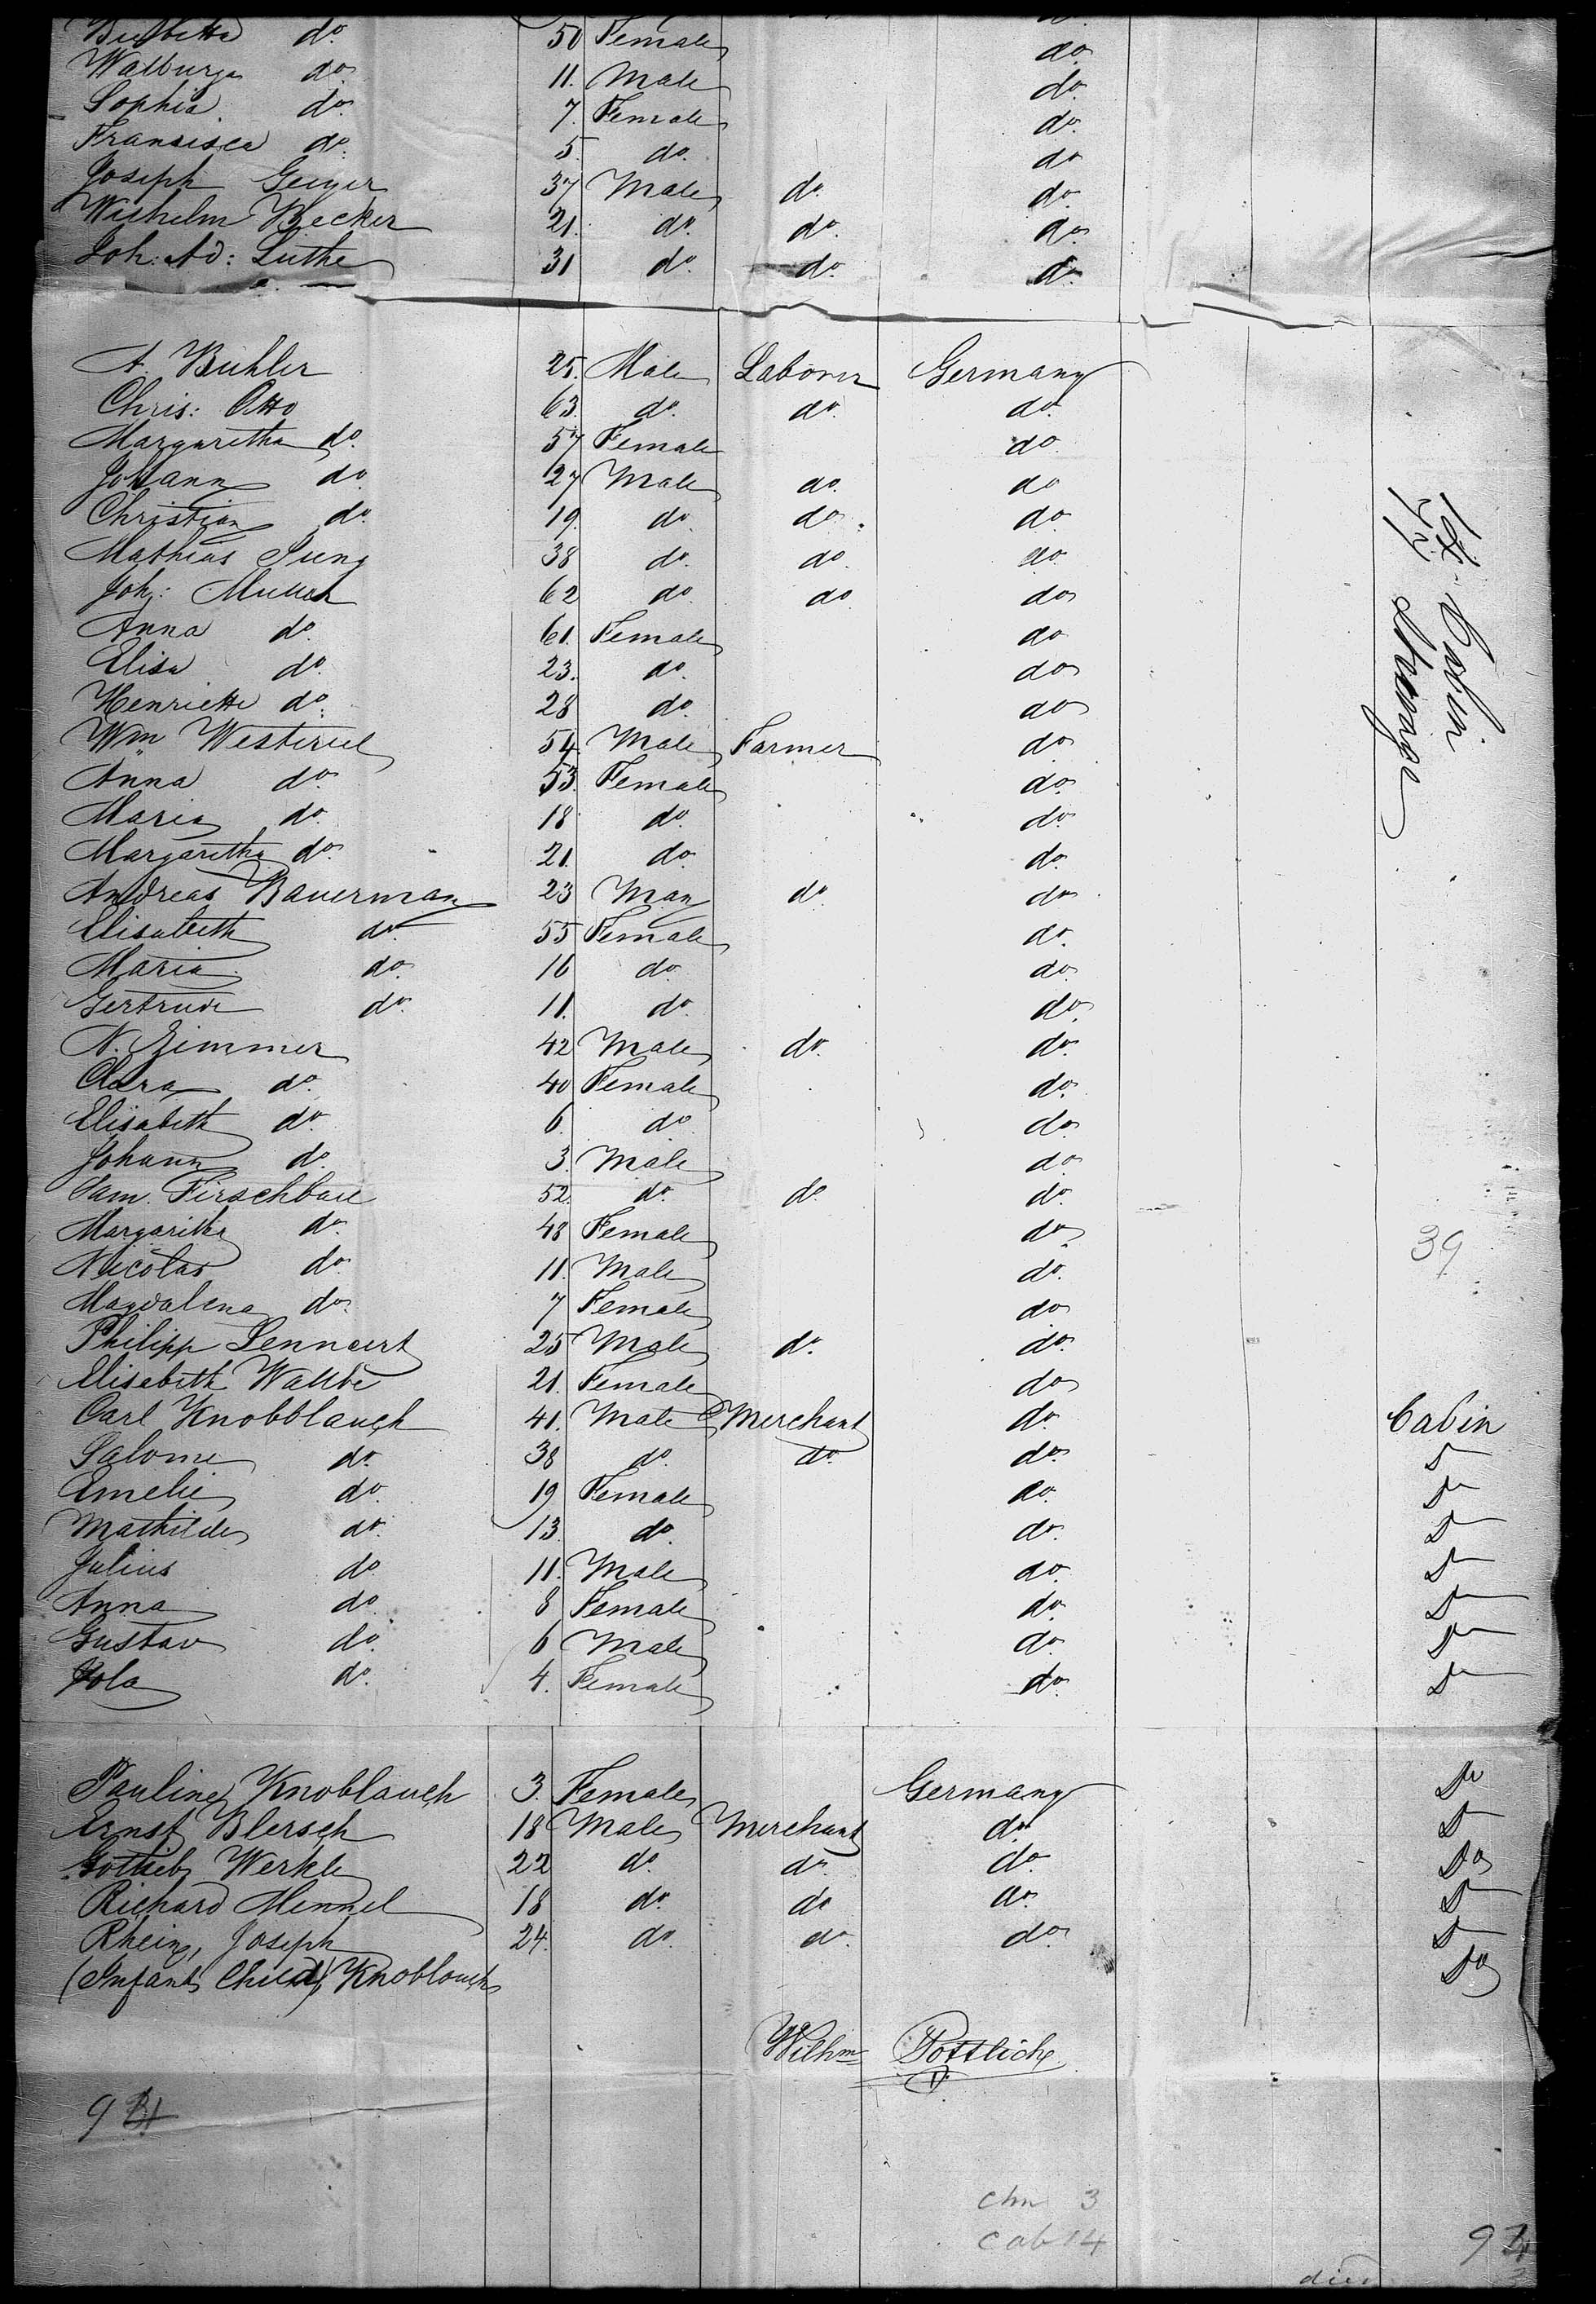 do. 50 Female do
Walburga do. 11. Male do.
Sophia do. 7. Female do.
Fransisca do. 5. do. do
Joseph Geiger 37 Male do. do.
Wilhelm Becker 21. do. do. do.
Joh: Ad: Luthe 31 do. do. do.
A. Buhler 25. Male Laborer Germany
Chris: Otto 63. do. do. do.
Margaretha do. 57 Female do.
Johann do. 27 Male do. do
Christian do. 19. do. do. do.
Mathias Jung 38 do. do. do.
Joh: 62 do. do do
Anna do. 61. Female do
Elisa do. 23. do. do
Henriette do. 28 do. do
Wm 54. Male Farmer do
Anna do. 53. Female do.
Maria do. 18 do. do.
Margaretha do. 21. do. do.
Andreas Bauerman 23 Man do. do
Elisabeth do. 55 Female do.
Maria do. 16 do. do.
Gertrude do. 11. do. do.
N. Zimmer 42 Male do. do.
Clara do. 40 Female do.
Elisabeth do. 6. do. do.
Johann do. 3. Male do
Firschbau 52. do. do. do.
Margaritha do. 48 Female do
Nicolas do. 11. Male do.
Magdalena do. 7 Female do
Philipp Lennert 25 Male do. do.
Elisabeth 21. Female do
Carl Knobblauch 41. Male Merchant do. Cabin
Salome do. 38 do. do. do. Do
Emelie do. 19 Female do. Do
Mathilde do. 13. do. do. Do
Julius do 11. Male do. Do
Anna do 8 Female do. Do
Gustav do. 6 Male do. Do
do. 4. Female do. Do
14 Cabin
77 Steerage
39
Pauline Knoblauch 3. Female Germany Do
Ernst Blersch 18 Male Merchant do. Do
Gottlieb Werkle 22 do. do. do. Do
Richard Hennel 18 do. do do. Do
Rhein, Joseph 24. do. do. do. Do
(Infant Child) Knoblauch Do
Wilhm
chn 3
cab 14